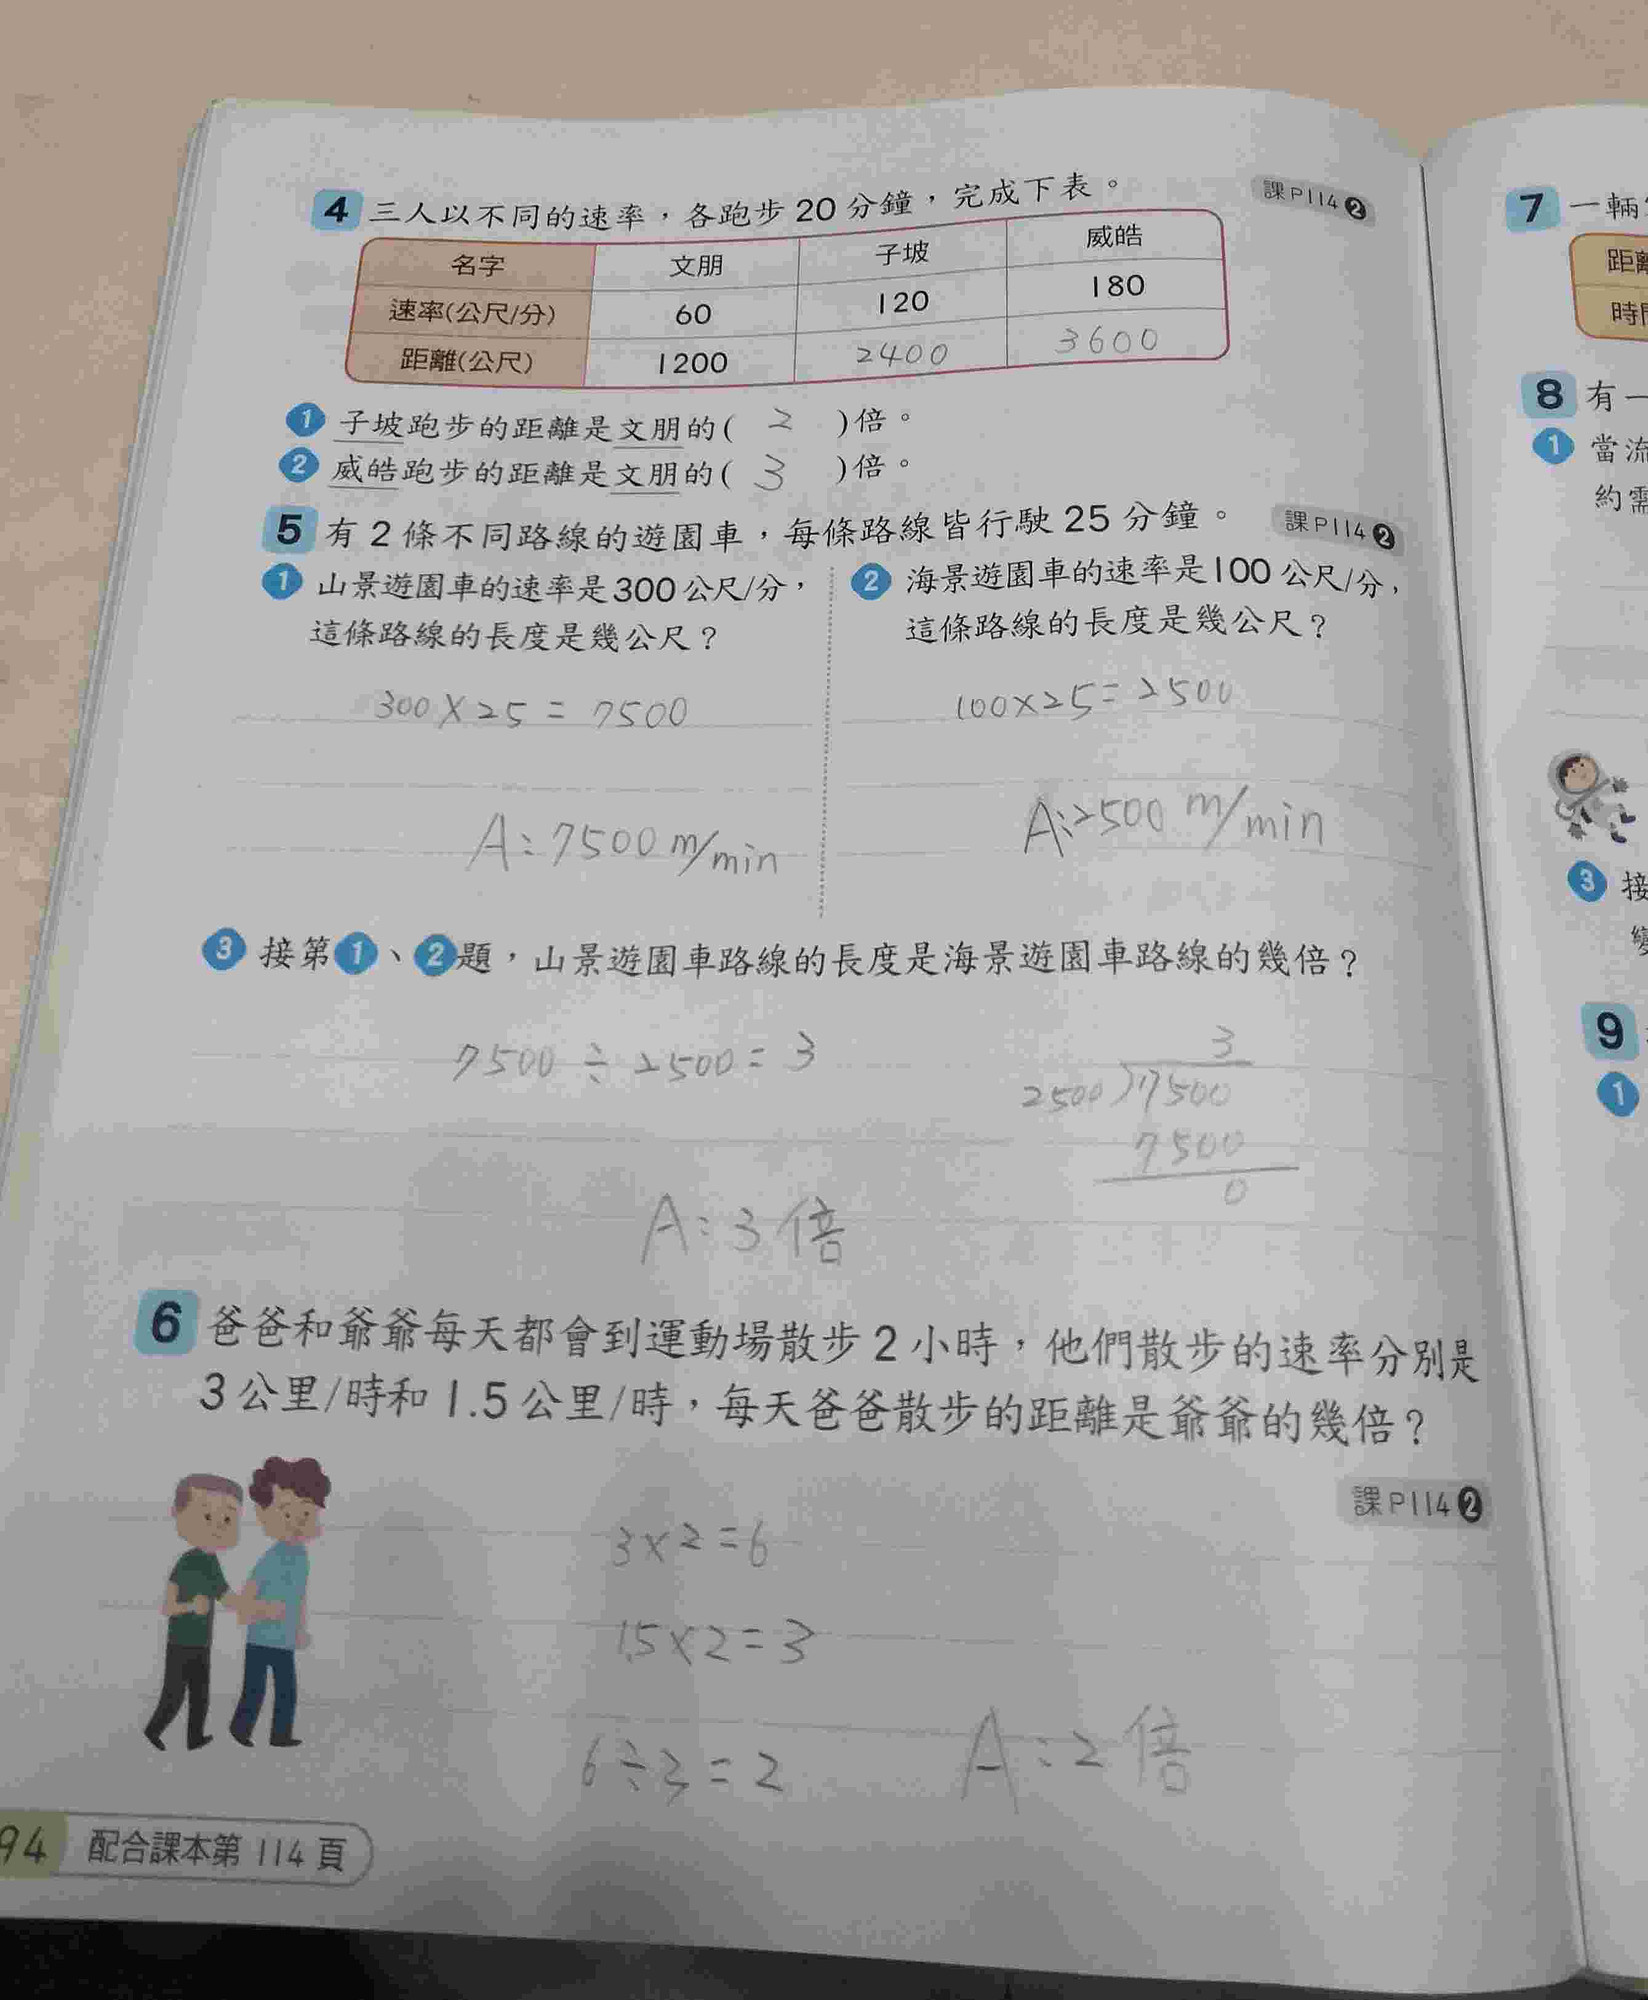 4 三人以不同的速率，各跑步20分鐘，完成下表。 課P114❷
名字 文朋 子坡 威皓
速率(公尺/分) 60 120 180
距離(公尺) 1200 2400 3600
1 子坡跑步的距離是文朋的( 2 )倍。
2 威皓跑步的距離是文朋的( 3 )倍。
5 有2條不同路線的遊園車，每條路線皆行駛25分鐘。 課P114❷
1 山景遊園車的速率是300公尺/分，
這條路線的長度是幾公尺？
300×25=7500
A:7500 m/min
2 海景遊園車的速率是100公尺/分，
這條路線的長度是幾公尺？
100×25=2500
A:2500 m/min
3 接第1、2題，山景遊園車路線的長度是海景遊園車路線的幾倍？
7500÷2500=3
3
2500)7500
7500
0
A:3倍
6 爸爸和爺爺每天都會到運動場散步2小時，他們散步的速率分別是
3公里/時和1.5公里/時，每天爸爸散步的距離是爺爺的幾倍？
課P114❷
3×2=6
1.5×2=3
6÷3=2
A:2倍
94 配合課本第114頁
7 一輛
距離
時間
8 有一
1 當流
約需
3 接
9
1